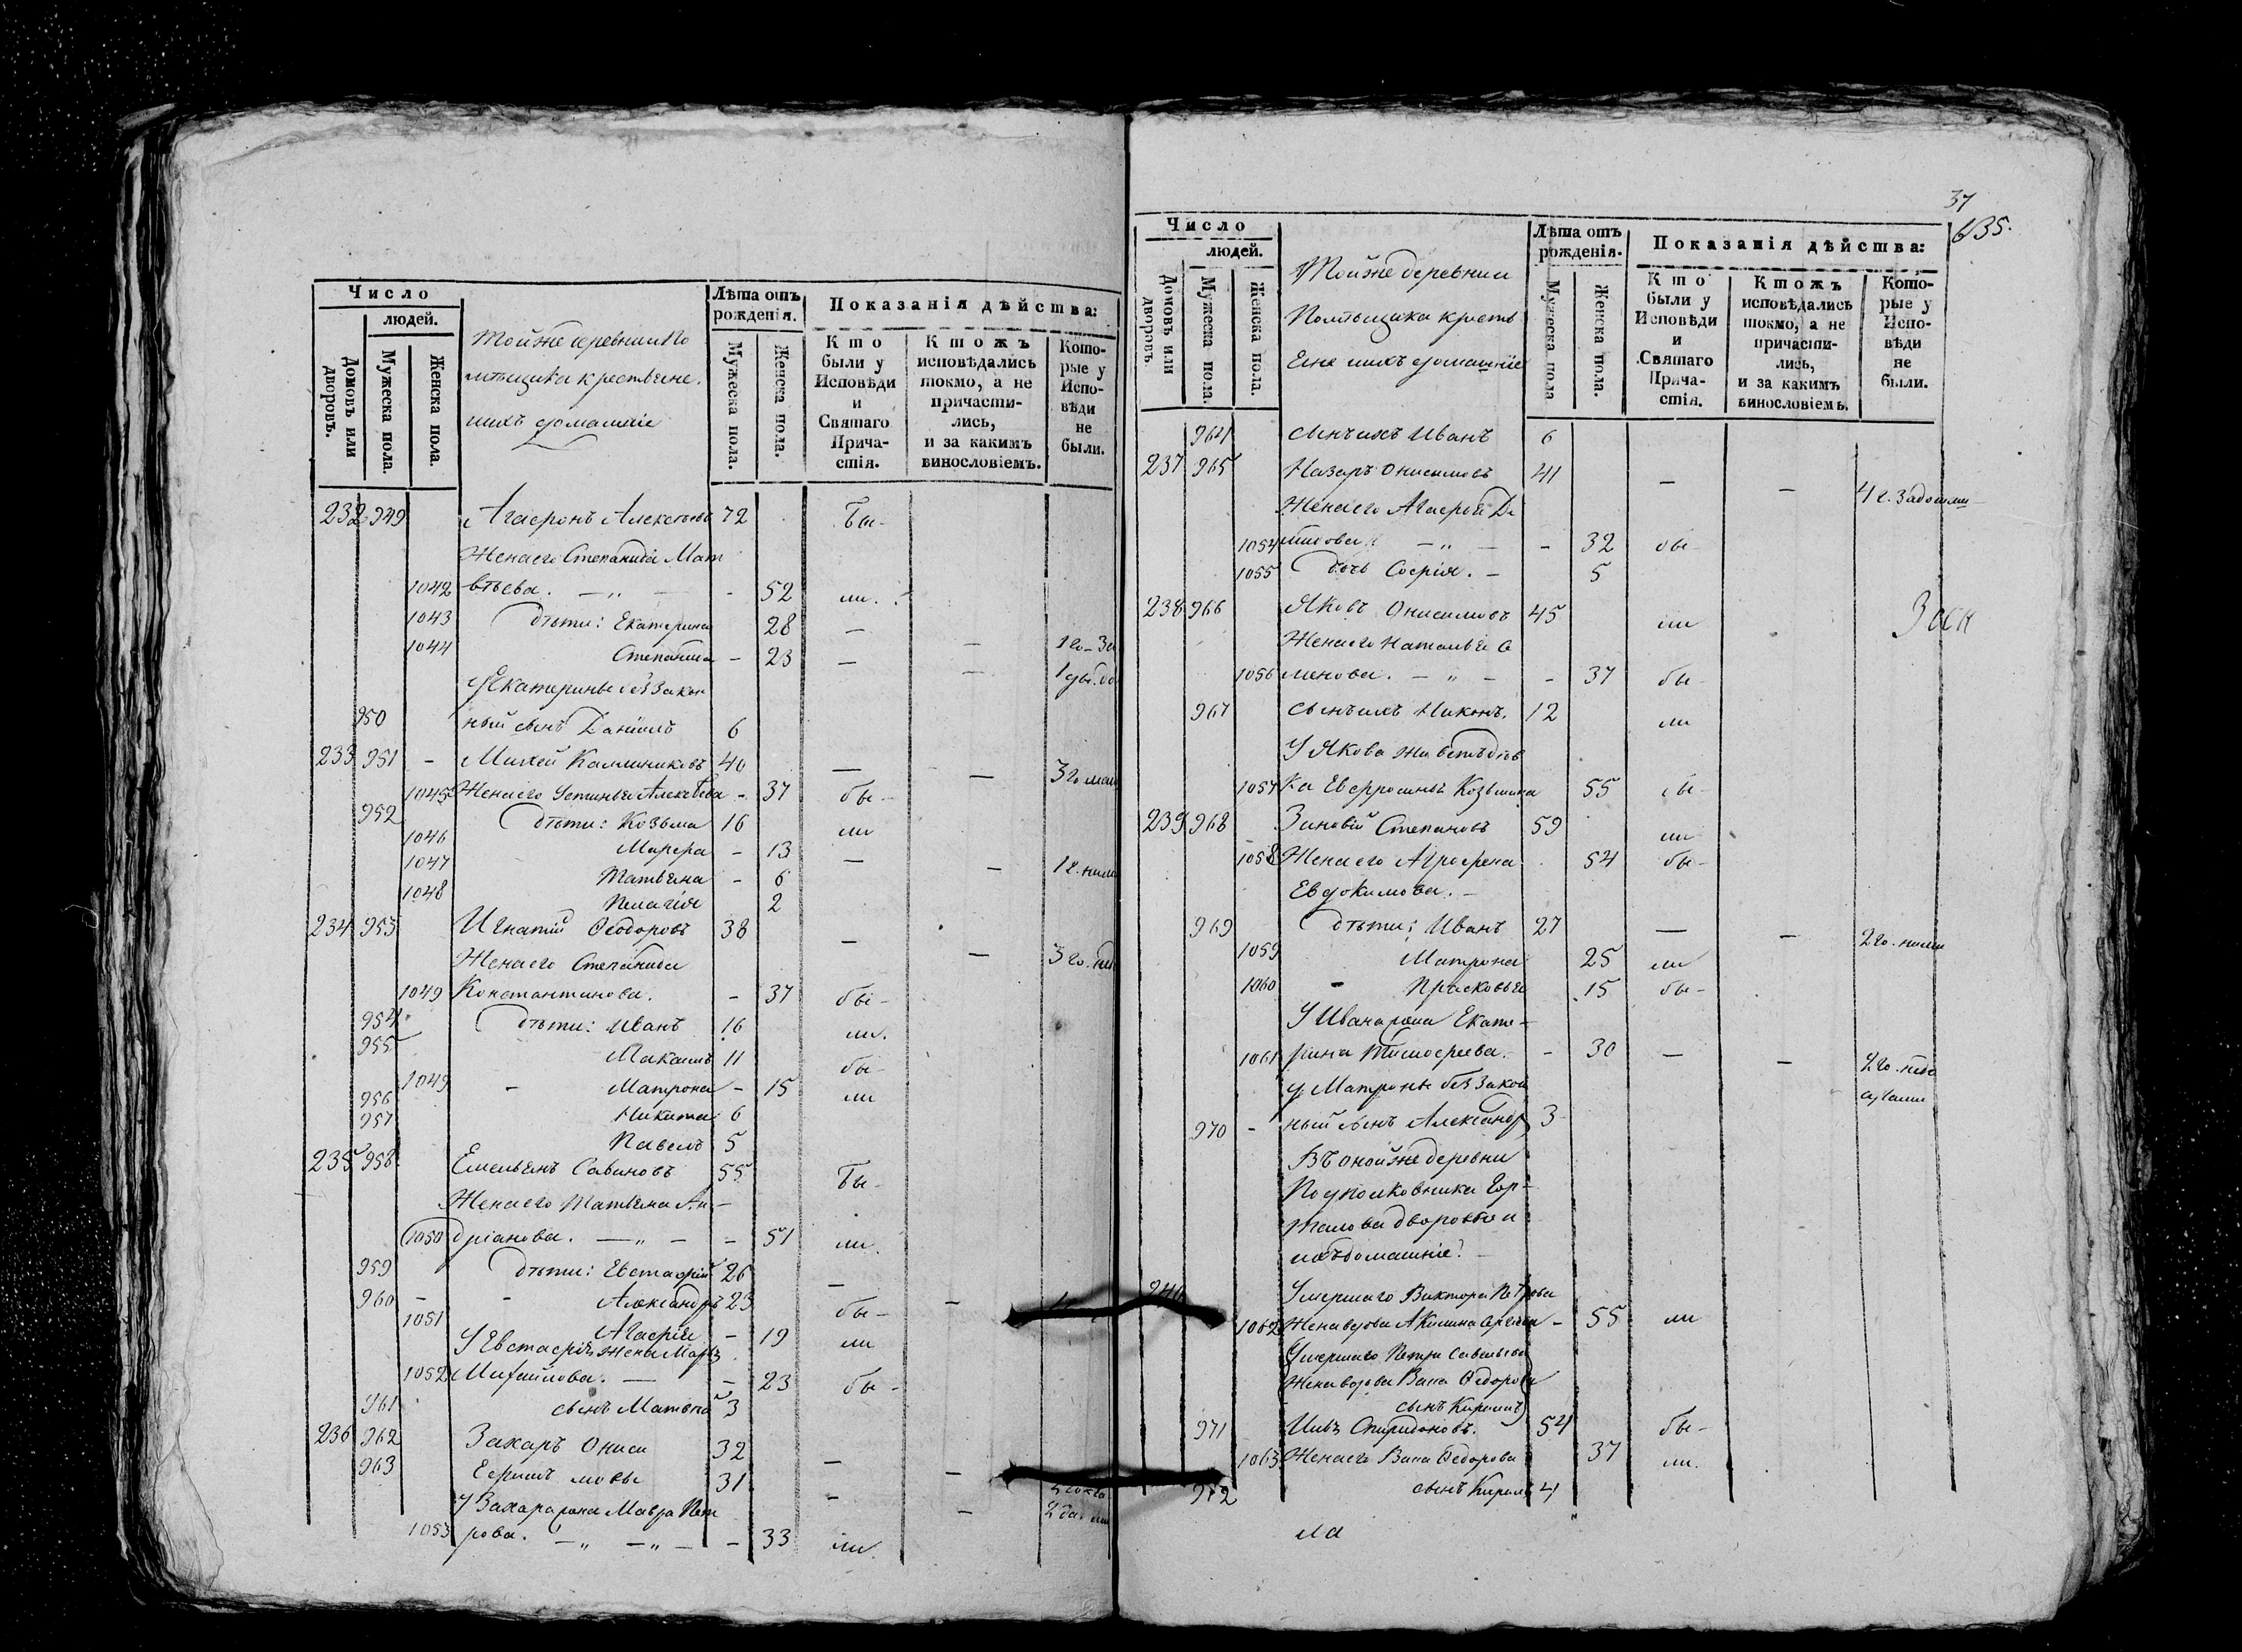 Число
людей.
Домовъ или дворовъ.
Мужеска пола.
Женска пола.
Тойже деревни По
мѣщика крестьяне.
ихъ домашніе
Лѣта отъ рожденія.
Мужеска пола.
Женска пола.
Показанія дѣйства:
Кто были у Исповѣди и Святаго Причастія.
Ктожъ исповѣдались токмо, а не причастились, и за какимъ винословіемъ.
Которые у Исповѣди не были.
232 949 Агафонъ Алексѣевъ 72 бы-
Жена его Степанида Мат
1042 вѣева. — „ — - 52 ли.
1043 дѣти: Екатерина 28 —
1044 Степанида - 23 — —
У Екатерины без закон
950 ный сынъ Даніилъ 6
233 951 - Михей Калиниковъ 40 — —
1045 Жена его Устинья Алексѣева - 37 бы-
952 дѣти: Козьма 16 ли
1046 Марфа - 13 — —
1047 Татьяна - 6
1048 Пелагія 2
234 953 Игнатій Ѳеодоровъ 38 — —
Жена его Степанида
1049 Константинова. - 37 бы-
954 дѣти: Иванъ 16 ли.
955 Максимъ 11 бы-
1049 - Матрона - 15 ли
956 Никита 6
957 Павелъ 5
235 958 Емельянъ Савиновъ 55 бы-
Жена его Татьяна Ан-
1050 дріанова. — „ — - 51 ли.
959 дѣти: Евстафій 26 — —
960 - - Александръ 23 бы-
1051 Агафія - 19 ли
У Евстафія жена Марѳ
1052 Михайлова. — - 23 бы-
961 сынъ Матвей 3
236 962 Захаръ Ониси 32 — —
963 Ефимъ мовы 31 - —
У Захара жена Мавра Пет
1053 рова. — „ — „ — - 33 ли.
37
635.
Число
людей.
Домовъ или дворовъ.
Мужеска пола.
Женска пола.
Тойже деревни
Помѣщика кресть
яне ихъ домашніе
Лѣта отъ рожденія.
Мужеска пола
Женска пола.
Показанія дѣйства:
Кто были у Исповѣди и Святаго Причастія.
Ктожъ исповѣдались токмо, а не причастились, и за какимъ винословіемъ.
Которые у Исповѣди не были.
964 сынъ ихъ Иванъ 6
237 965 Назаръ Онисимовъ 41 — —
Жена его Агафія
1054 — „ — - 32 бы-
1055 дочь Софія. - 5
238 966 Яковъ Онисимовъ 45 ли
Жена его Наталья С
1056 менова. — „ — - 37 бы-
967 сынъ ихъ Никонъ. 12 ли
У Якова живетъ дѣв
1057 ка Евфросинья Козьмина 55 бы-
239 968 Зиновій Степановъ 59 ли
1058 Жена его Агрофена 54 бы-
Евдокимова. -
969 дѣти: Иванъ 27 — -
1059 Матрона 25 ли
1060 - Прасковья 15 бы-
У Ивана жена Екате-
1061 рина Тимофеева. - - 30 — -
у Матроны без закон
970 - ный сынъ Александр 3
Въ онойже деревни
Подполковника Гор-
талова дворовые и
ихъ домашніе. -
240 Умершаго Виктора Петрова
1062 Жена вдова Акилина - 55 ли
Умершаго Петра Савельева
Жена вдова Васа Ѳедорова
сынъ Кирилъ
971 Спиридоновъ. 54 бы-
1063 Жена его Васа Ѳедорова 37 ли.
972 сынъ Кирилъ 4
ла